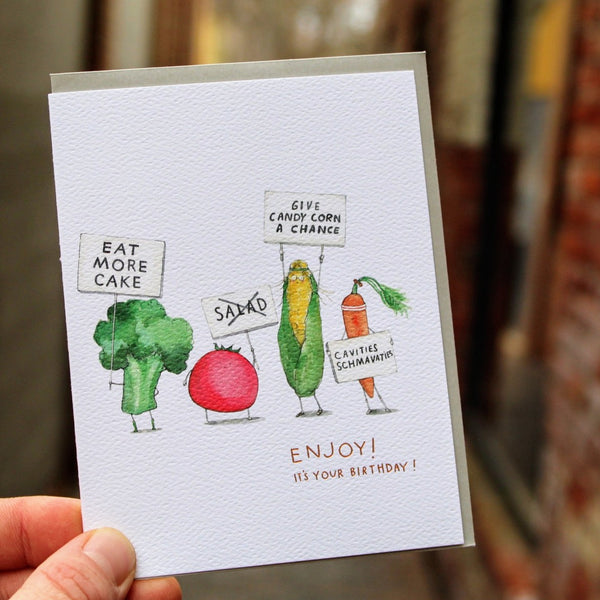 EAT
MORE
CAKE
SALAD
GIVE
CANDY CORN
A CHANCE
CAVITIES
SCHMAVATIES
ENJOY!
IT'S YOUR BIRTHDAY!